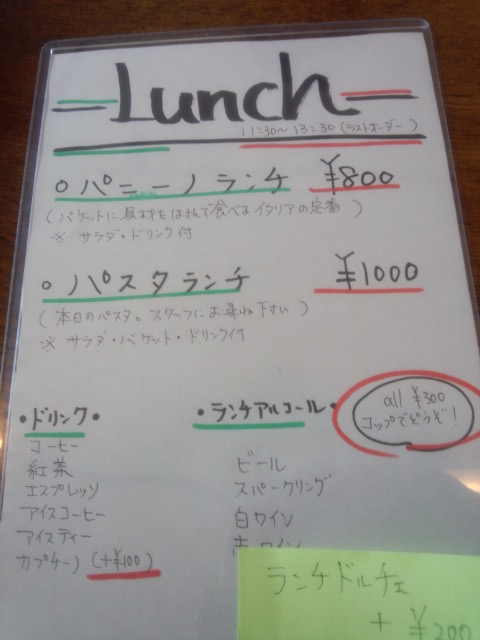 Lunch
11:30〜13:30(ラストオーダー)
○パニーノランチ ¥800
(バケットに具材をはさんで食べるイタリアの定番)
※サラダ・ドリンク付
○パスタランチ ¥1000
(本日のパスタ。スタッフにお尋ね下さい)
※サラダ・バケット・ドリンク付
•ドリンク•
コーヒー
紅茶
エスプレッソ
アイスコーヒー
アイスティー
カプチーノ(+¥100)
•ランチアルコール•
all ¥300
コップでどうぞ!
ビール
スパークリング
白ワイン
赤ワイン
ランチドルチェ
+ ¥200